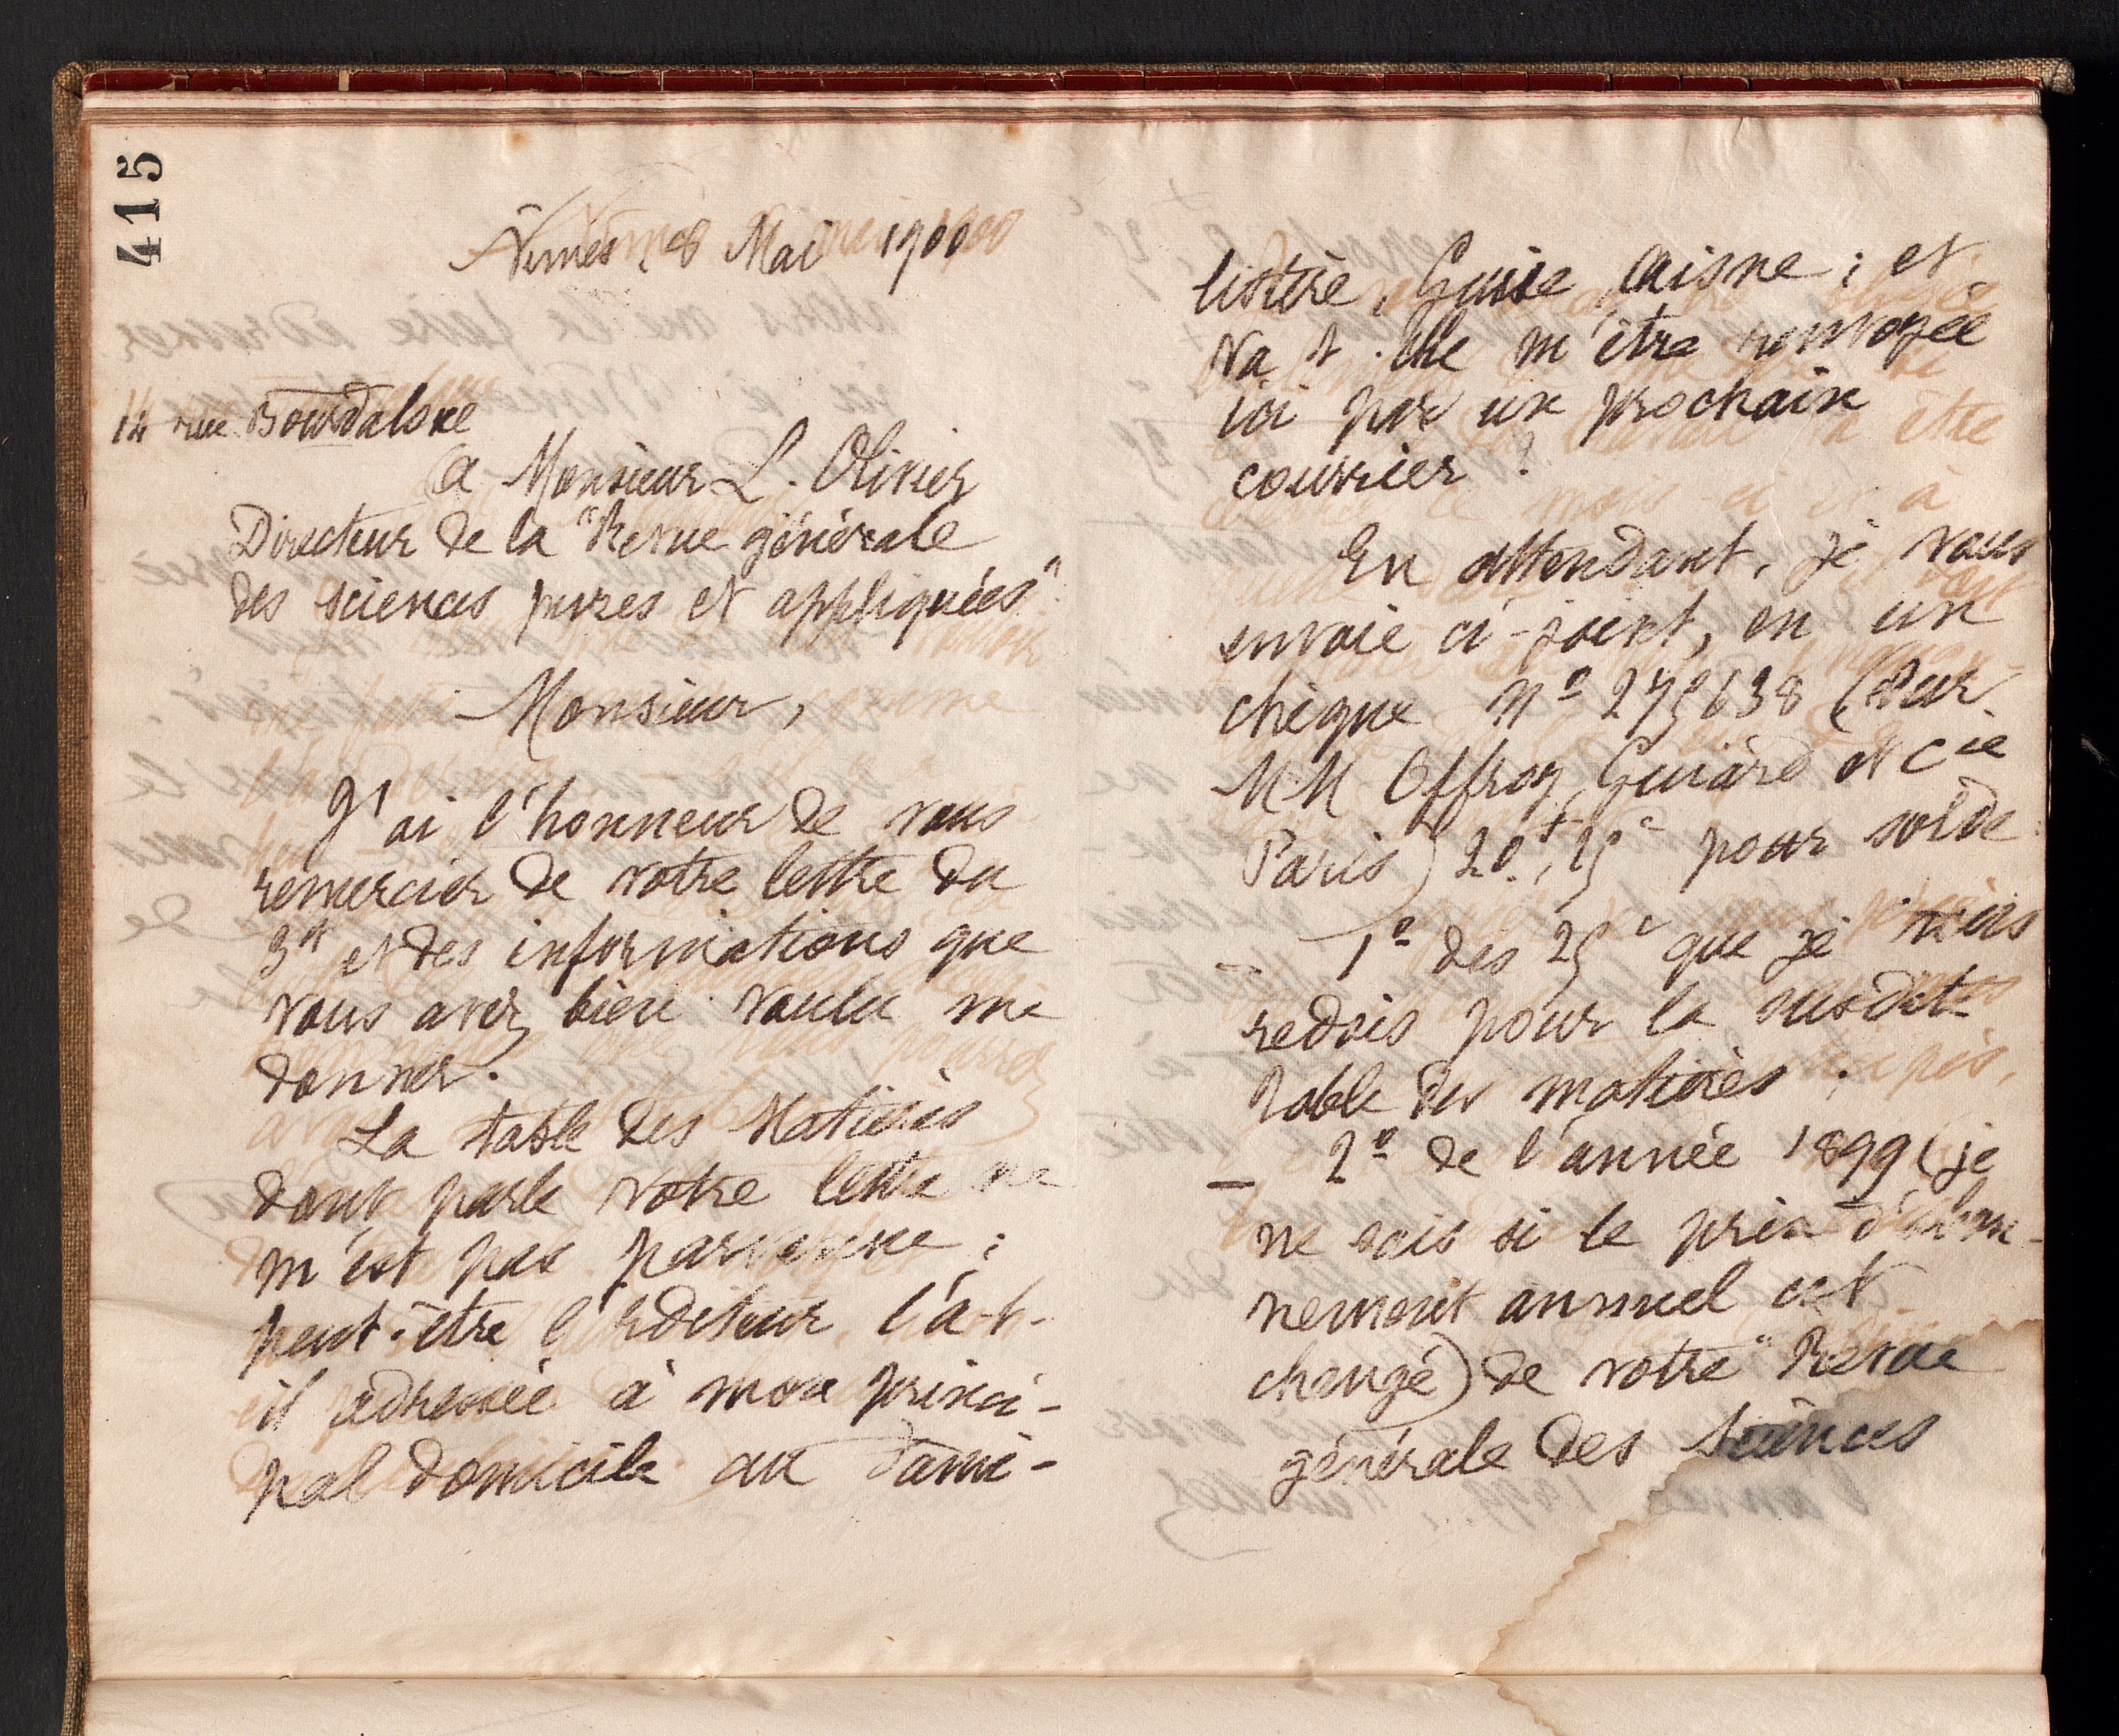 415
Nîmes, 8 Mai 1900
14 rue Bourdaloue
A Monsieur L. Olivier
Directeur de la "Revue générale
des sciences pures et appliquées"
Monsieur,
J'ai l'honneur de vous
remercier de votre lettre du
3 et et des informations que
vous avez bien voulu me
donner.
La table des Matières
dont parle votre lettre ne
m'est pas parvenue ;
peut-être l'éditeur l'a-t-
il adressée à mon princi-
pal domicile au Fami-
listère, Guise, Aisne ; et
va-t-elle m'être renvoyée
ici par un prochain
courrier ?
En attendant, je vous
envoie ci-joint, en un
chèque nº 275638 (sur
MM Offroy, Guiard et Cie
Paris) 20f,25c pour solde
– 1º des 25c que je
redois pour la susdite
table des matières ;
– 2º de l'année 1899 (je
ne sais si le prix d'abon-
nement annuel est
changé) de votre "Revue
générale des Sciences